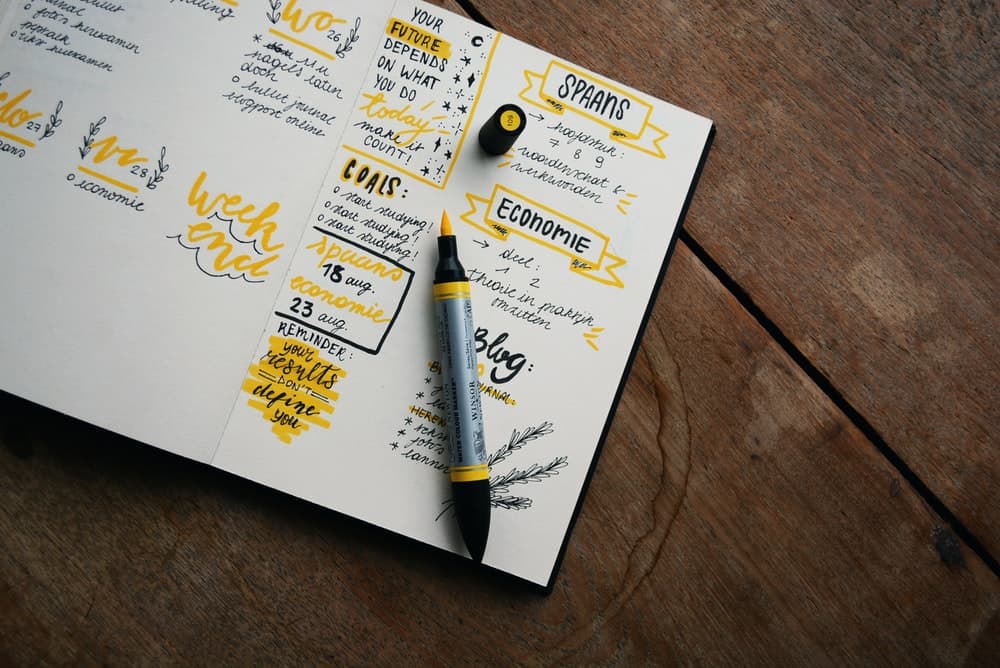 o foto's herexamen
o tekst herexamen
wo 26
nagels laten
doen
o bullet journal
blogpost online
do 27
vr 28
o economie
week
end
YOUR
FUTURE
DEPENDS
ON WHAT
YOU DO
today
make it
COUNT!
GOALS:
o start studying!
o start studying!
o start studying!
spaans
18 aug.
economie
23 aug.
REMINDER:
your
results
DON'T
define
you
SPAANS
→ hoofdstuk:
7 8 9
woordenschat &
werkwoorden
ECONOMIE
→ deel:
1 2
theorie in praktijk
omzetten
Blog:
* foto's
109
WATER COLOUR MARKER
WINSOR